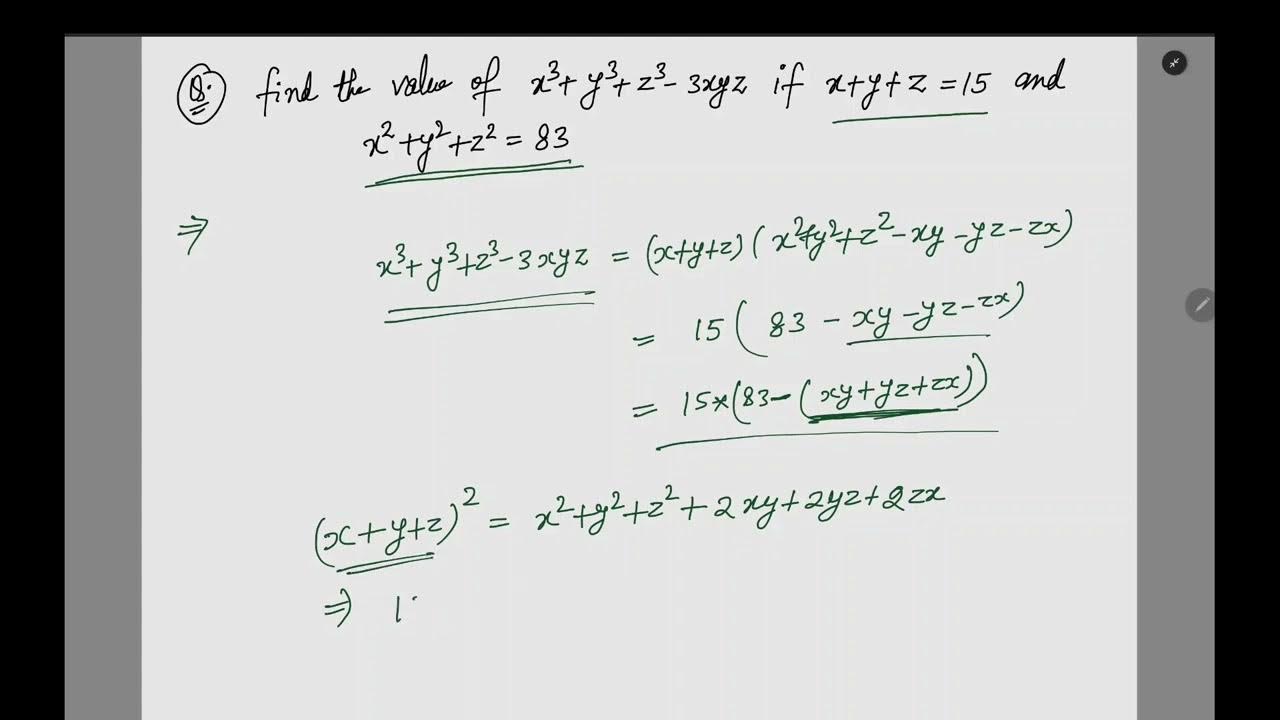 Q. find the value of x³+y³+z³-3xyz if x+y+z=15 and
x²+y²+z²=83
⇒
x³+y³+z³-3xyz = (x+y+z)(x²+y²+z²-xy-yz-zx)
= 15(83-xy-yz-zx)
= 15*(83-(xy+yz+zx))
(x+y+z)² = x²+y²+z²+2xy+2yz+2zx
⇒ 1